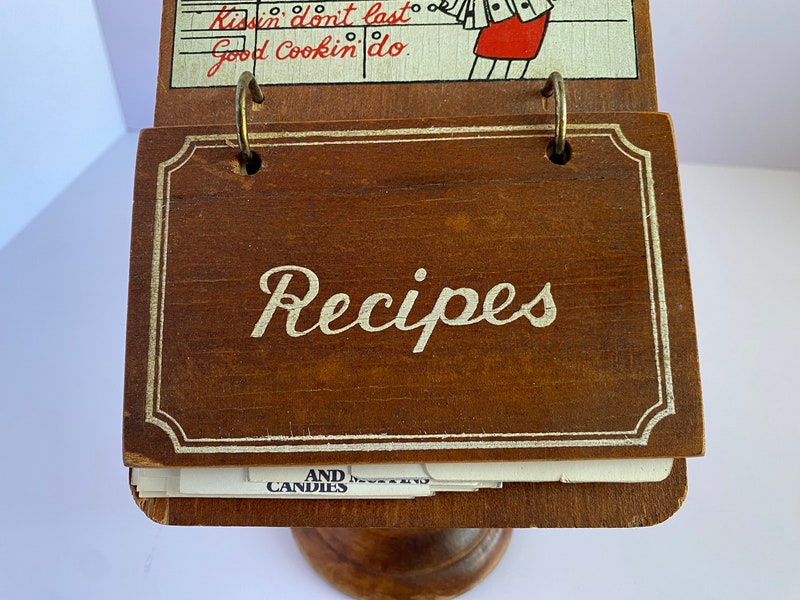 Kissin' don't last
Good Cookin' do.
Recipes
AND MUFFINS
CANDIES